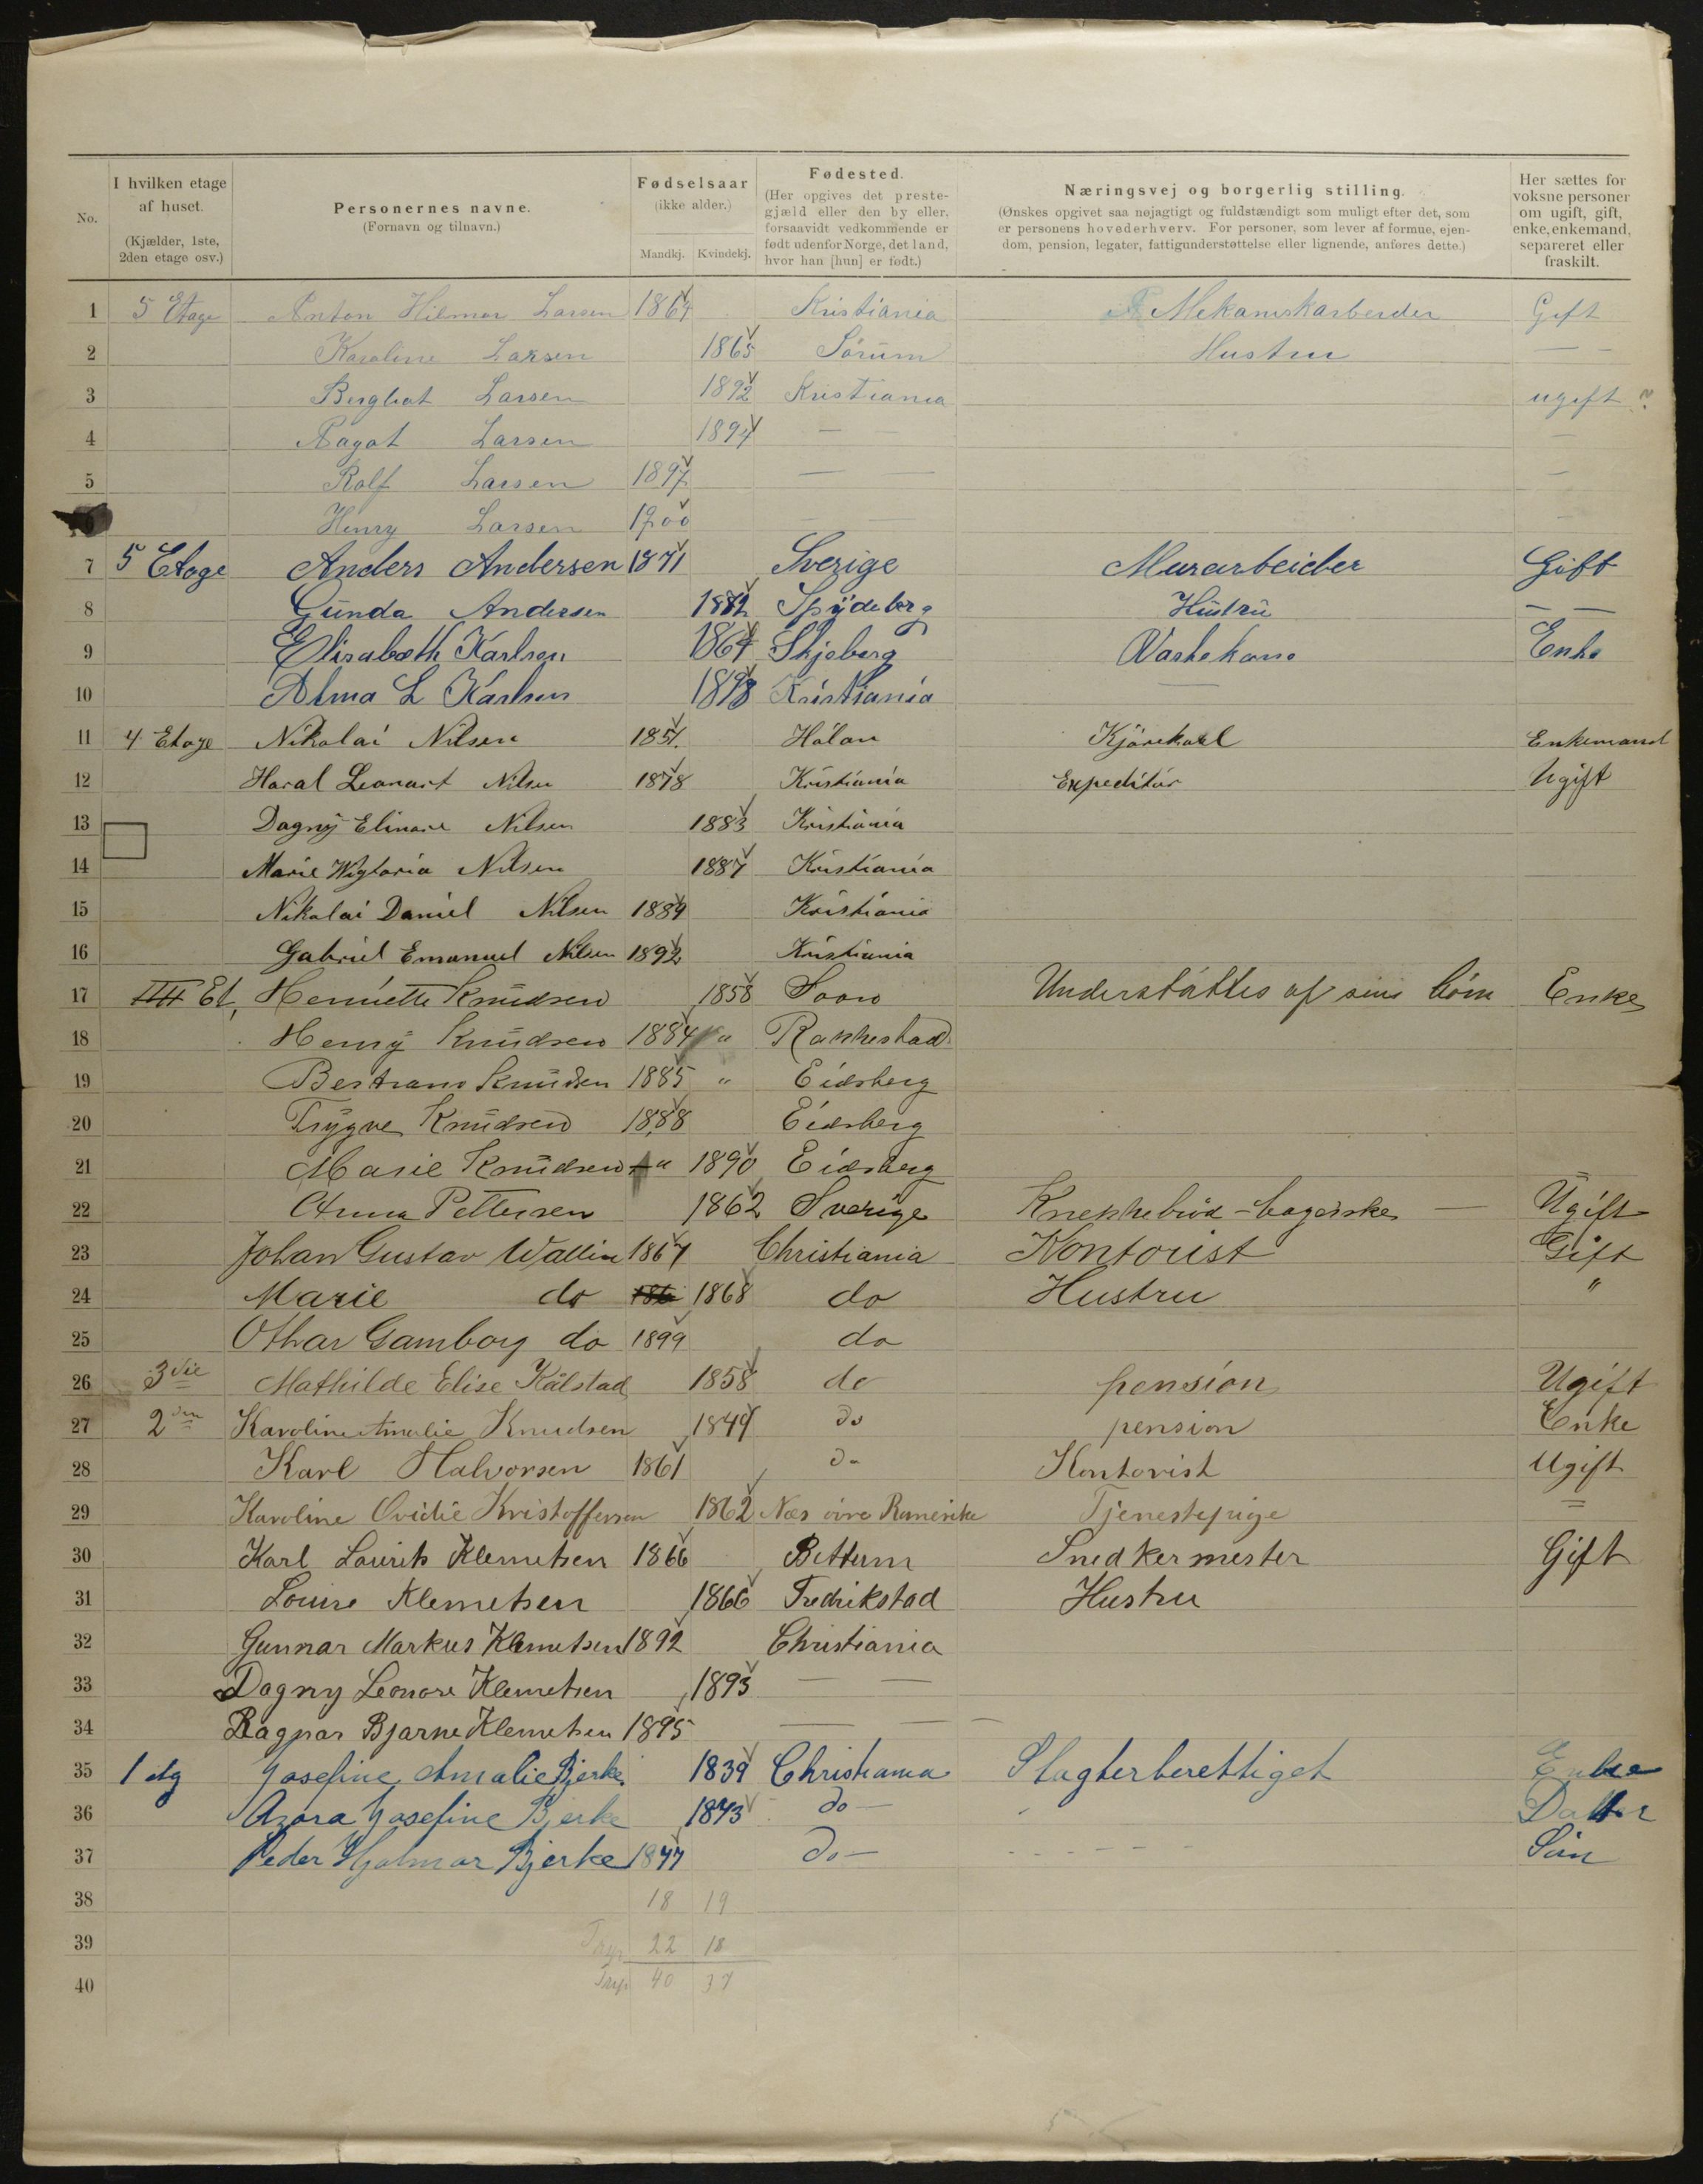 No.
I hvilken etage af huset.
(Kjælder, 1ste, 2den etage osv.)
Personernes navne.
(Fornavn og tilnavn.)
Fødselsaar
(ikke alder.)
Mandkj. Kvindekj.
Fødested.
(Her opgives det prestegjæld eller den by eller, forsaavidt vedkommende er født udenfor Norge, det land, hvor han [hun] er født.)
Næringsvej og borgerlig stilling.
(Ønskes opgivet saa nøjagtigt og fuldstændigt som muligt efter det, som er personens hovederhverv. For personer, som lever af formue, ejendom, pension, legater, fattigunderstøttelse eller lignende, anføres dette.)
Her sættes for voksne personer om ugift, gift, enke, enkemand, separeret eller fraskilt.
1 5 Etage Anton Hilmar Larsen 1864 Kristiania Mekaniskarbeider Gift
2 Karoline Larsen 1865 Sörum Hustru — —
3 Bergliot Larsen 1892 Kristiania ugift
4 Aagot Larsen 1894 — — —
5 Rolf Larsen 1897 — — —
Henry Larsen 1900 — — —
7 5 Etage Anders Andersen 1871 Sverige Murarbeider Gift
8 Gunda Andersen 1882 Spydeberg Hustru — —
9 Elisabeth Karlsen 1864 Skjeberg Vaskekone Enke
10 Alma L Karlsen 1898 Kristiania —
11 4 Etage Nikolai Nilsen 1851 Hölan Kjörekarl Enkemand
12 Haral Leonart Nilsen 1878 Kristiania Expeditör Ugift
13 Dagny Elinore Nilsen 1883 Kristiania
14 Marie Wigtoria Nilsen 1887 Kristiania
15 Nikolai Daniel Nilsen 1889 Kristiania
16 Gabriel Emanuel Nilsen 1892 Kristiania
17 IIII Et, Henriette Knudsen 1858 Soon Understöttes af sine börn Enke
18 Henry Knudsen 1884 " Rakkestad
19 Bertram Knudsen 1885 " Eidsberg
20 Trygve Knudsen 1888 Eidsberg
21 Marie Knudsen " 1890 Eidsberg
22 Anna Pettersen 1862 Sverige Knekkebröd-bagerske — Ugift
23 Johan Gustav Wallin 1867 Christiania Kontorist Gift
24 Marie do 186 1868 do Hustru "
25 Othar Gamborg do 1899 do
26 3die Mathilde Elise Kölstad 1858 do pension Ugift
27 2den Karoline Amalie Knudsen 1849 do pension Enke
28 Karl Halvorsen 1861 do Kontorist Ugift
29 Karoline Ovidie Kristoffersen 1862 Næs övre Romerike Tjenestepige =
30 Karl Laurits Klemetsen 1866 Bottum Snedkermester Gift
31 Louise Klemetsen 1866 Fredrikstad Hustru
32 Gunnar Markus Klemetsen 1892 Christiania
33 Dagny Leonore Klemetsen 1893 — —
34 Ragnar Bjarne Klemetsen 1895 — — —
35 1 etg Josefine Amalie Bjerke 1839 Christiania Slagterberettiget Enke
36 Azora Josefine Bjerke 1873 do — Datter
37 Peder Hjalmar Bjerke 1877 do — - - - - Sön
38 18 19
39 22 18
40 40 37